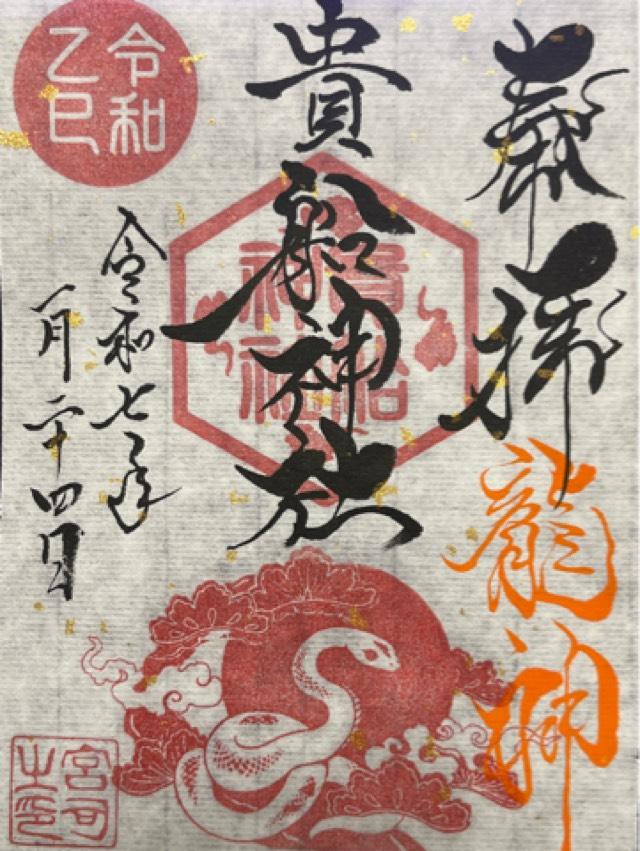 奉拝
龍神
貴船神社
貴船
神社
令和
乙巳
令和七年
一月二十四日
宮司
之印